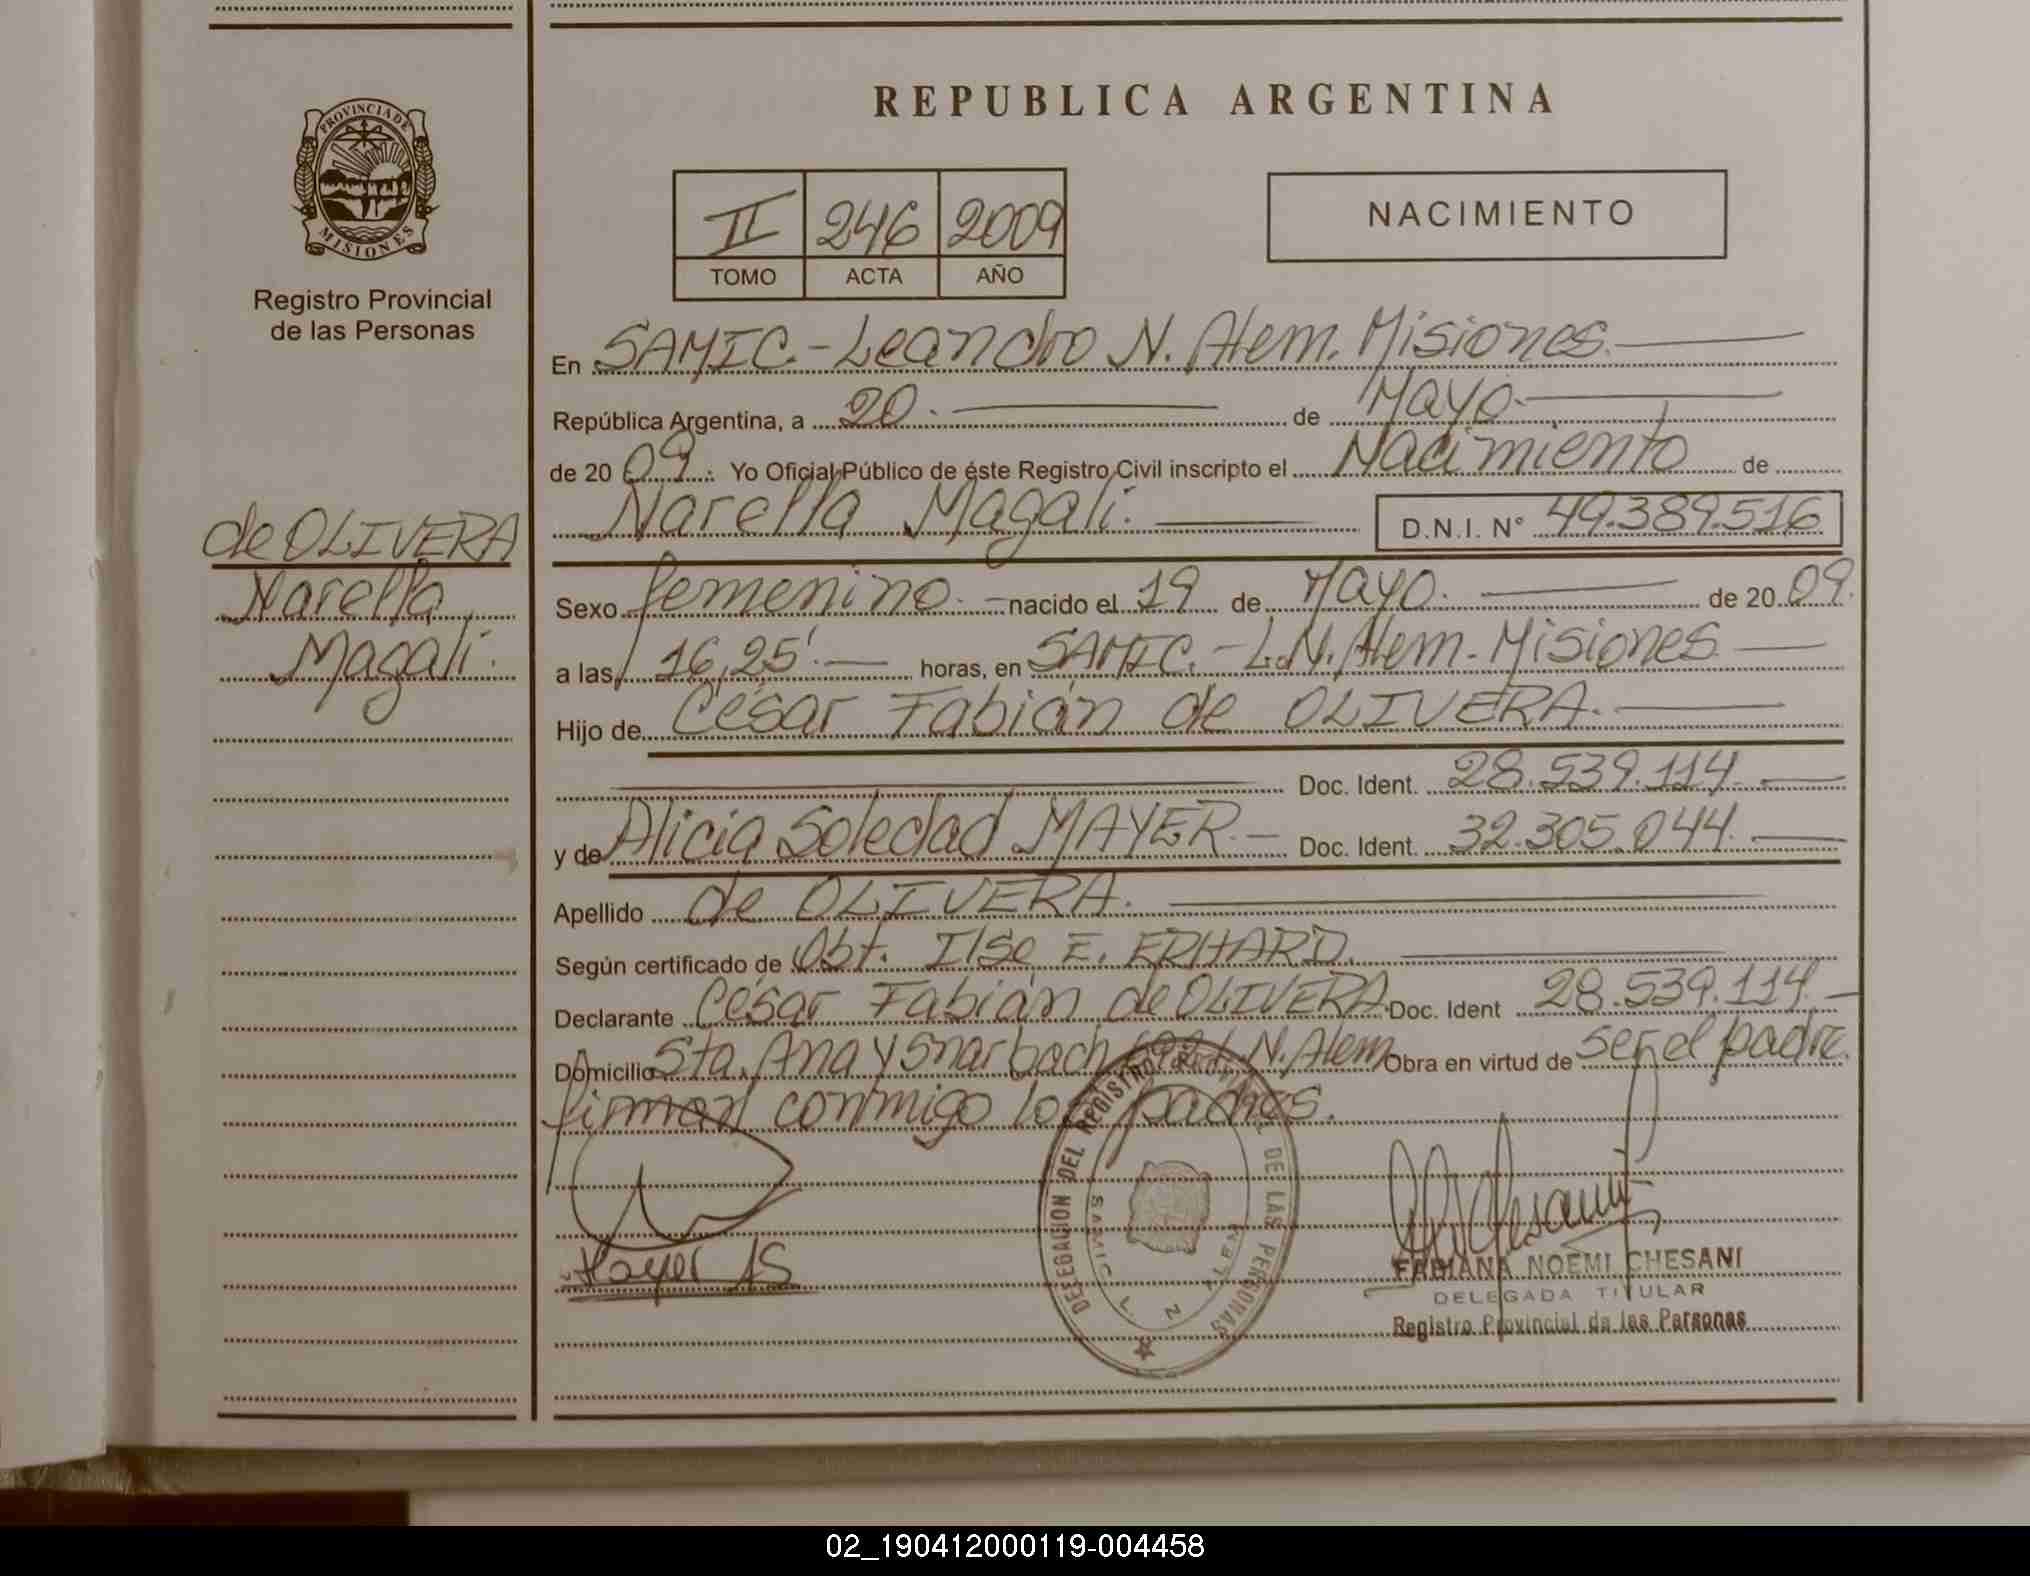 REPUBLICA ARGENTINA
PROVINCIA DE
MISIONES
Registro Provincial
de las Personas
II 246 2009
TOMO ACTA AÑO
NACIMIENTO
En SAMIC.-Leandro N. Alem. Misiones.
República Argentina, a 20. de Mayo.
de 20 09. Yo Oficial Público de éste Registro Civil inscripto el Nacimiento de
Narella Magali. D.N.I. N° 49.389.516
de OLIVERA
Narella
Magali.
Sexo femenino. nacido el 19 de Mayo. de 20 09.
a las 16,25'. horas, en SAMIC.-L.N. Alem. Misiones
Hijo de César Fabián de OLIVERA.
Doc. Ident. 28.539.114.
y de Alicia Soledad MAYER. Doc. Ident. 32.305.044.
Apellido de OLIVERA.
Según certificado de Obt. Ilse E. ERHARD.
Declarante César Fabián de OLIVERA. Doc. Ident 28.539.114.
Domicilio Sta. Ana y L.N. Alem Obra en virtud de ser el padre.
firman conmigo los padres.
DELEGACION DEL REGISTRO PROVINCIAL DE LAS PERSONAS
SAMIC L N ALEM
Mayer AS
FABIANA NOEMI CHESANI
DELEGADA TITULAR
Registro Provincial de las Personas
02_190412000119-004458